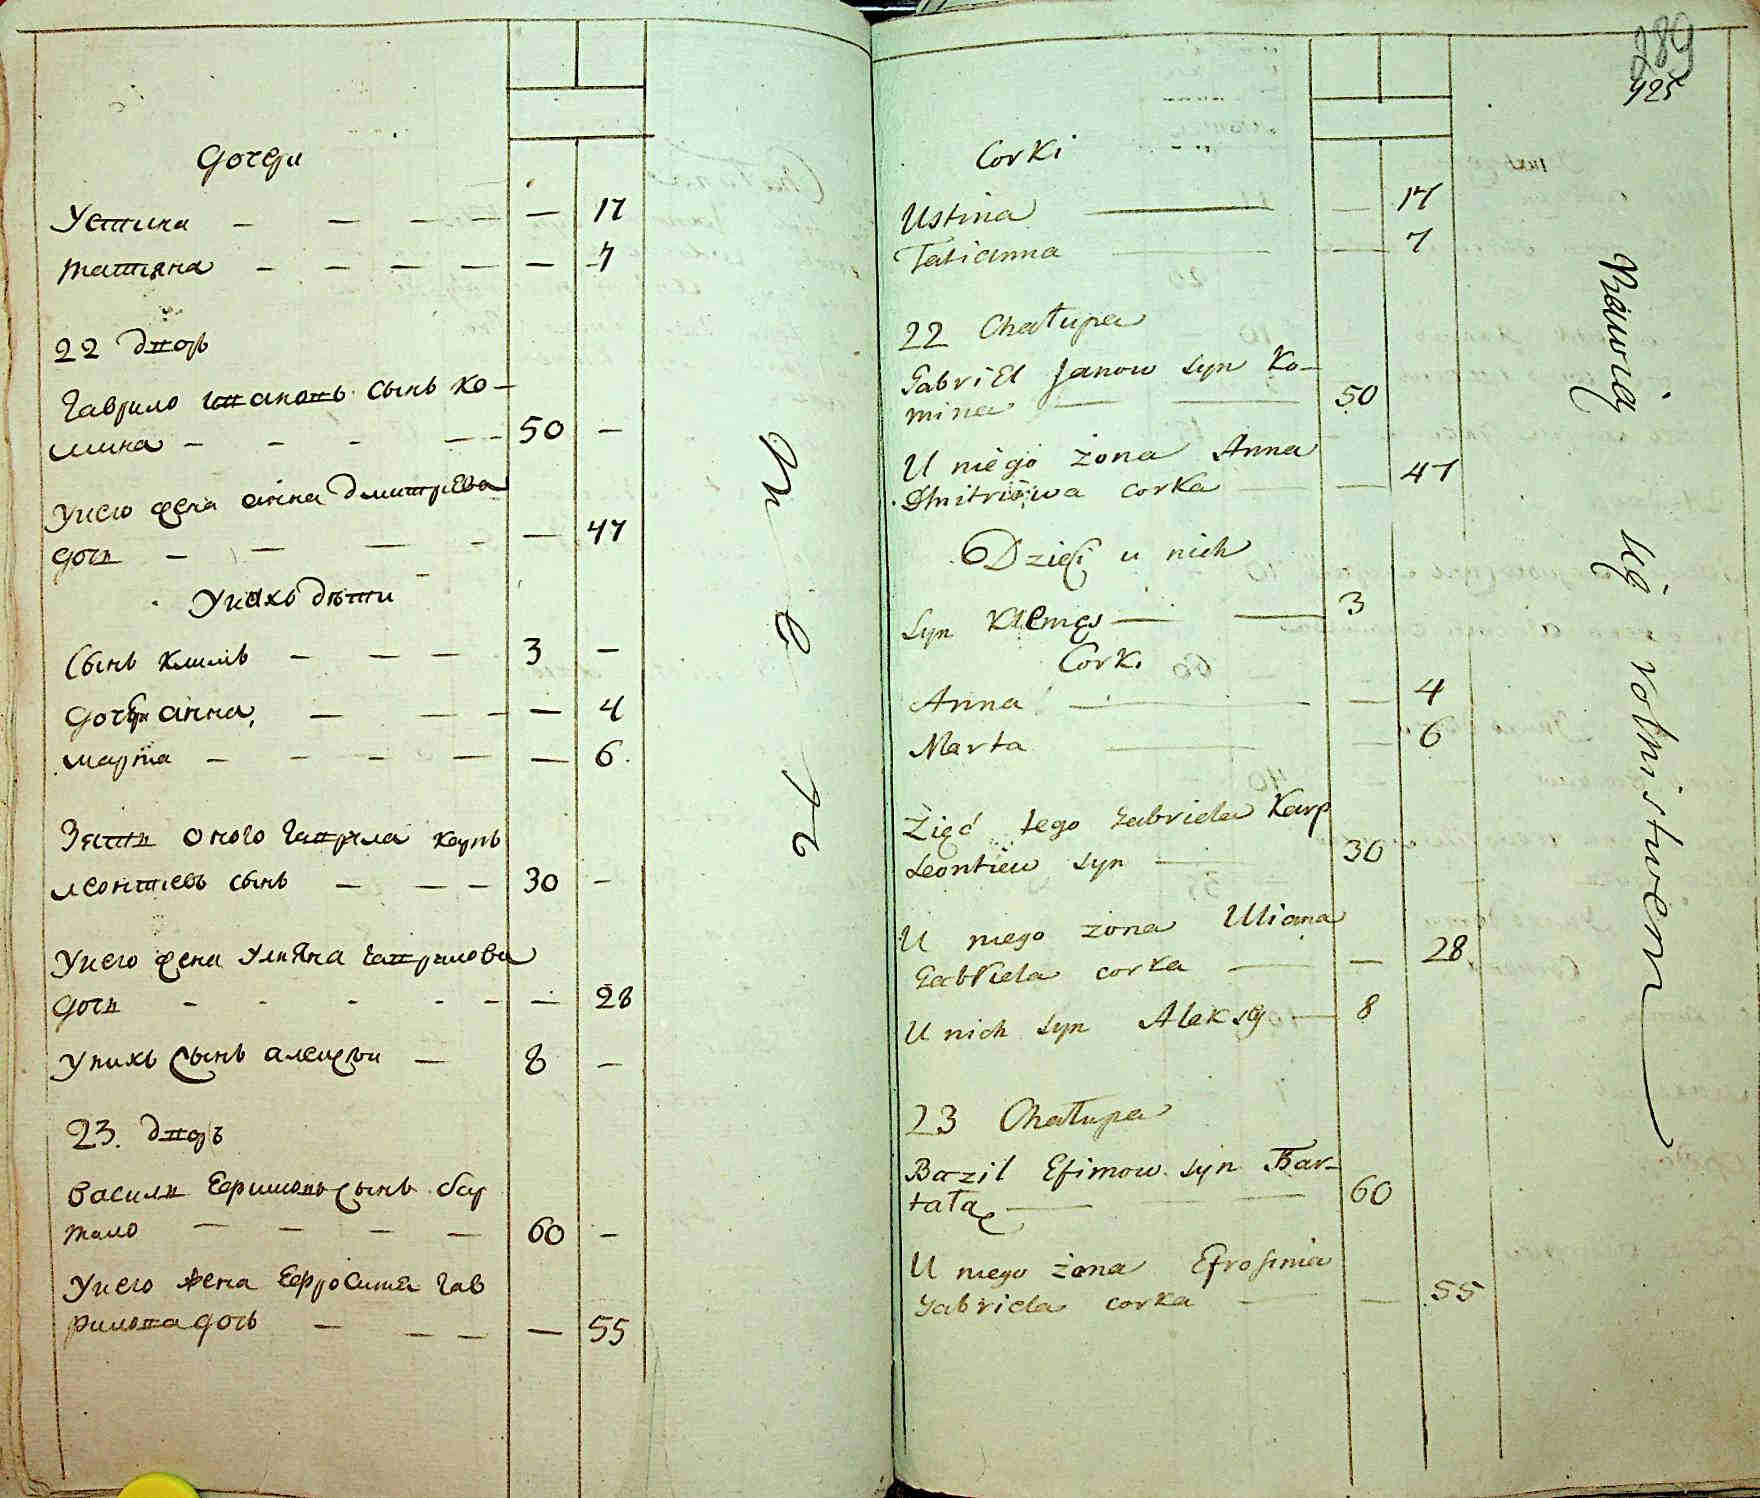 Дочери
Устина — — — — — 17
Татияна — — — — — 7
22 Дворъ
Гаврило Ивановъ сынъ Ко-
мина — — — — 50 —
У него жена Анна Дмитрева
дочь — — — — — 47
У нихъ дѣти
Сынъ Климъ — — — 3 —
Дочери Анна, — — — — 4
Марта — — — — — 6
Зять оного Гаврила Карпъ
Леонтиевъ сынъ — — — 30 —
У него жена Улияна Гаврилова
дочь — — — — — — 28
У нихъ сынъ Алецѣи — 8 —
23. Дворъ
Василь Ефимовъ сынъ Бар
тало — — — — 60 —
У него жена Ефросиния Гав
рилова дочь — — — — 55
289
425
Corki
Ustina — — 17
Tatianna — — 7
22 Chałupa
Gabriel Janow syn Ko-
mina — — 50
U niego żona Anna
Dmitriewa corka — — 47
Dzieci u nich
Syn Klemęs — — 3
Corki
Anna — — 4
Marta — — 6
Zięć tego Gabriela Karp
Leontiew syn — 30
U niego żona Uliana
Gabriela corka — — 28
U nich syn Aleksy — 8
23 Chałupa
Bazil Efimow syn Bar-
tała — — 60
U niego żona Efrosinia
Gabriela corka — — 55
się rotmistrzem